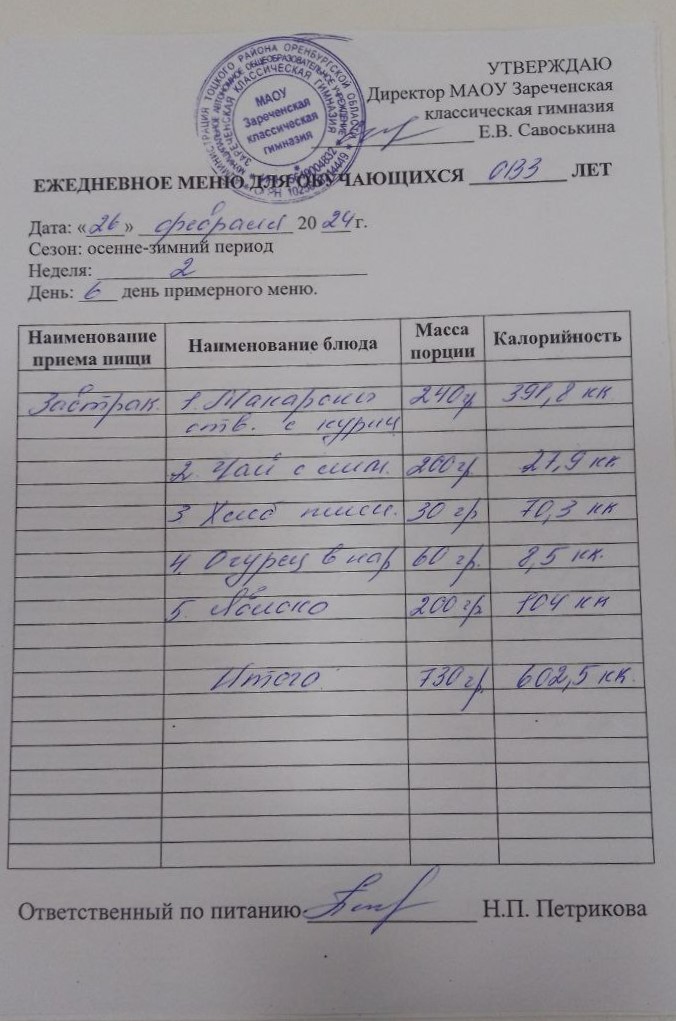 АДМИНИСТРАЦИЯ ТОЦКОГО РАЙОНА ОРЕНБУРГСКОЙ ОБЛАСТИ
МУНИЦИПАЛЬНОЕ АВТОНОМНОЕ ОБЩЕОБРАЗОВАТЕЛЬНОЕ УЧРЕЖДЕНИЕ
ЗАРЕЧЕНСКАЯ КЛАССИЧЕСКАЯ ГИМНАЗИЯ
МАОУ
Зареченская
классическая
гимназия
УТВЕРЖДАЮ
Директор МАОУ Зареченская
классическая гимназия
Е.В. Савоськина
ЕЖЕДНЕВНОЕ МЕНЮ ДЛЯ ОБУЧАЮЩИХСЯ ОВЗ ЛЕТ
Дата: «26» февраля 2024 г.
Сезон: осенне-зимний период
Неделя: 2
День: 6 день примерного меню.
Наименование приема пищи Наименование блюда Масса порции Калорийность
Завтрак 1. Макароны 240 гр 391,8 кк
отв. с куриц
2. Чай с лим. 200 гр 27,9 кк
3 Хлеб пшен. 30 гр 70,3 кк
4. Огурец в нар 60 гр. 8,5 кк.
5. Яблоко 200 гр 104 кк
Итого 730 гр. 602,5 кк.
Ответственный по питанию Н.П. Петрикова